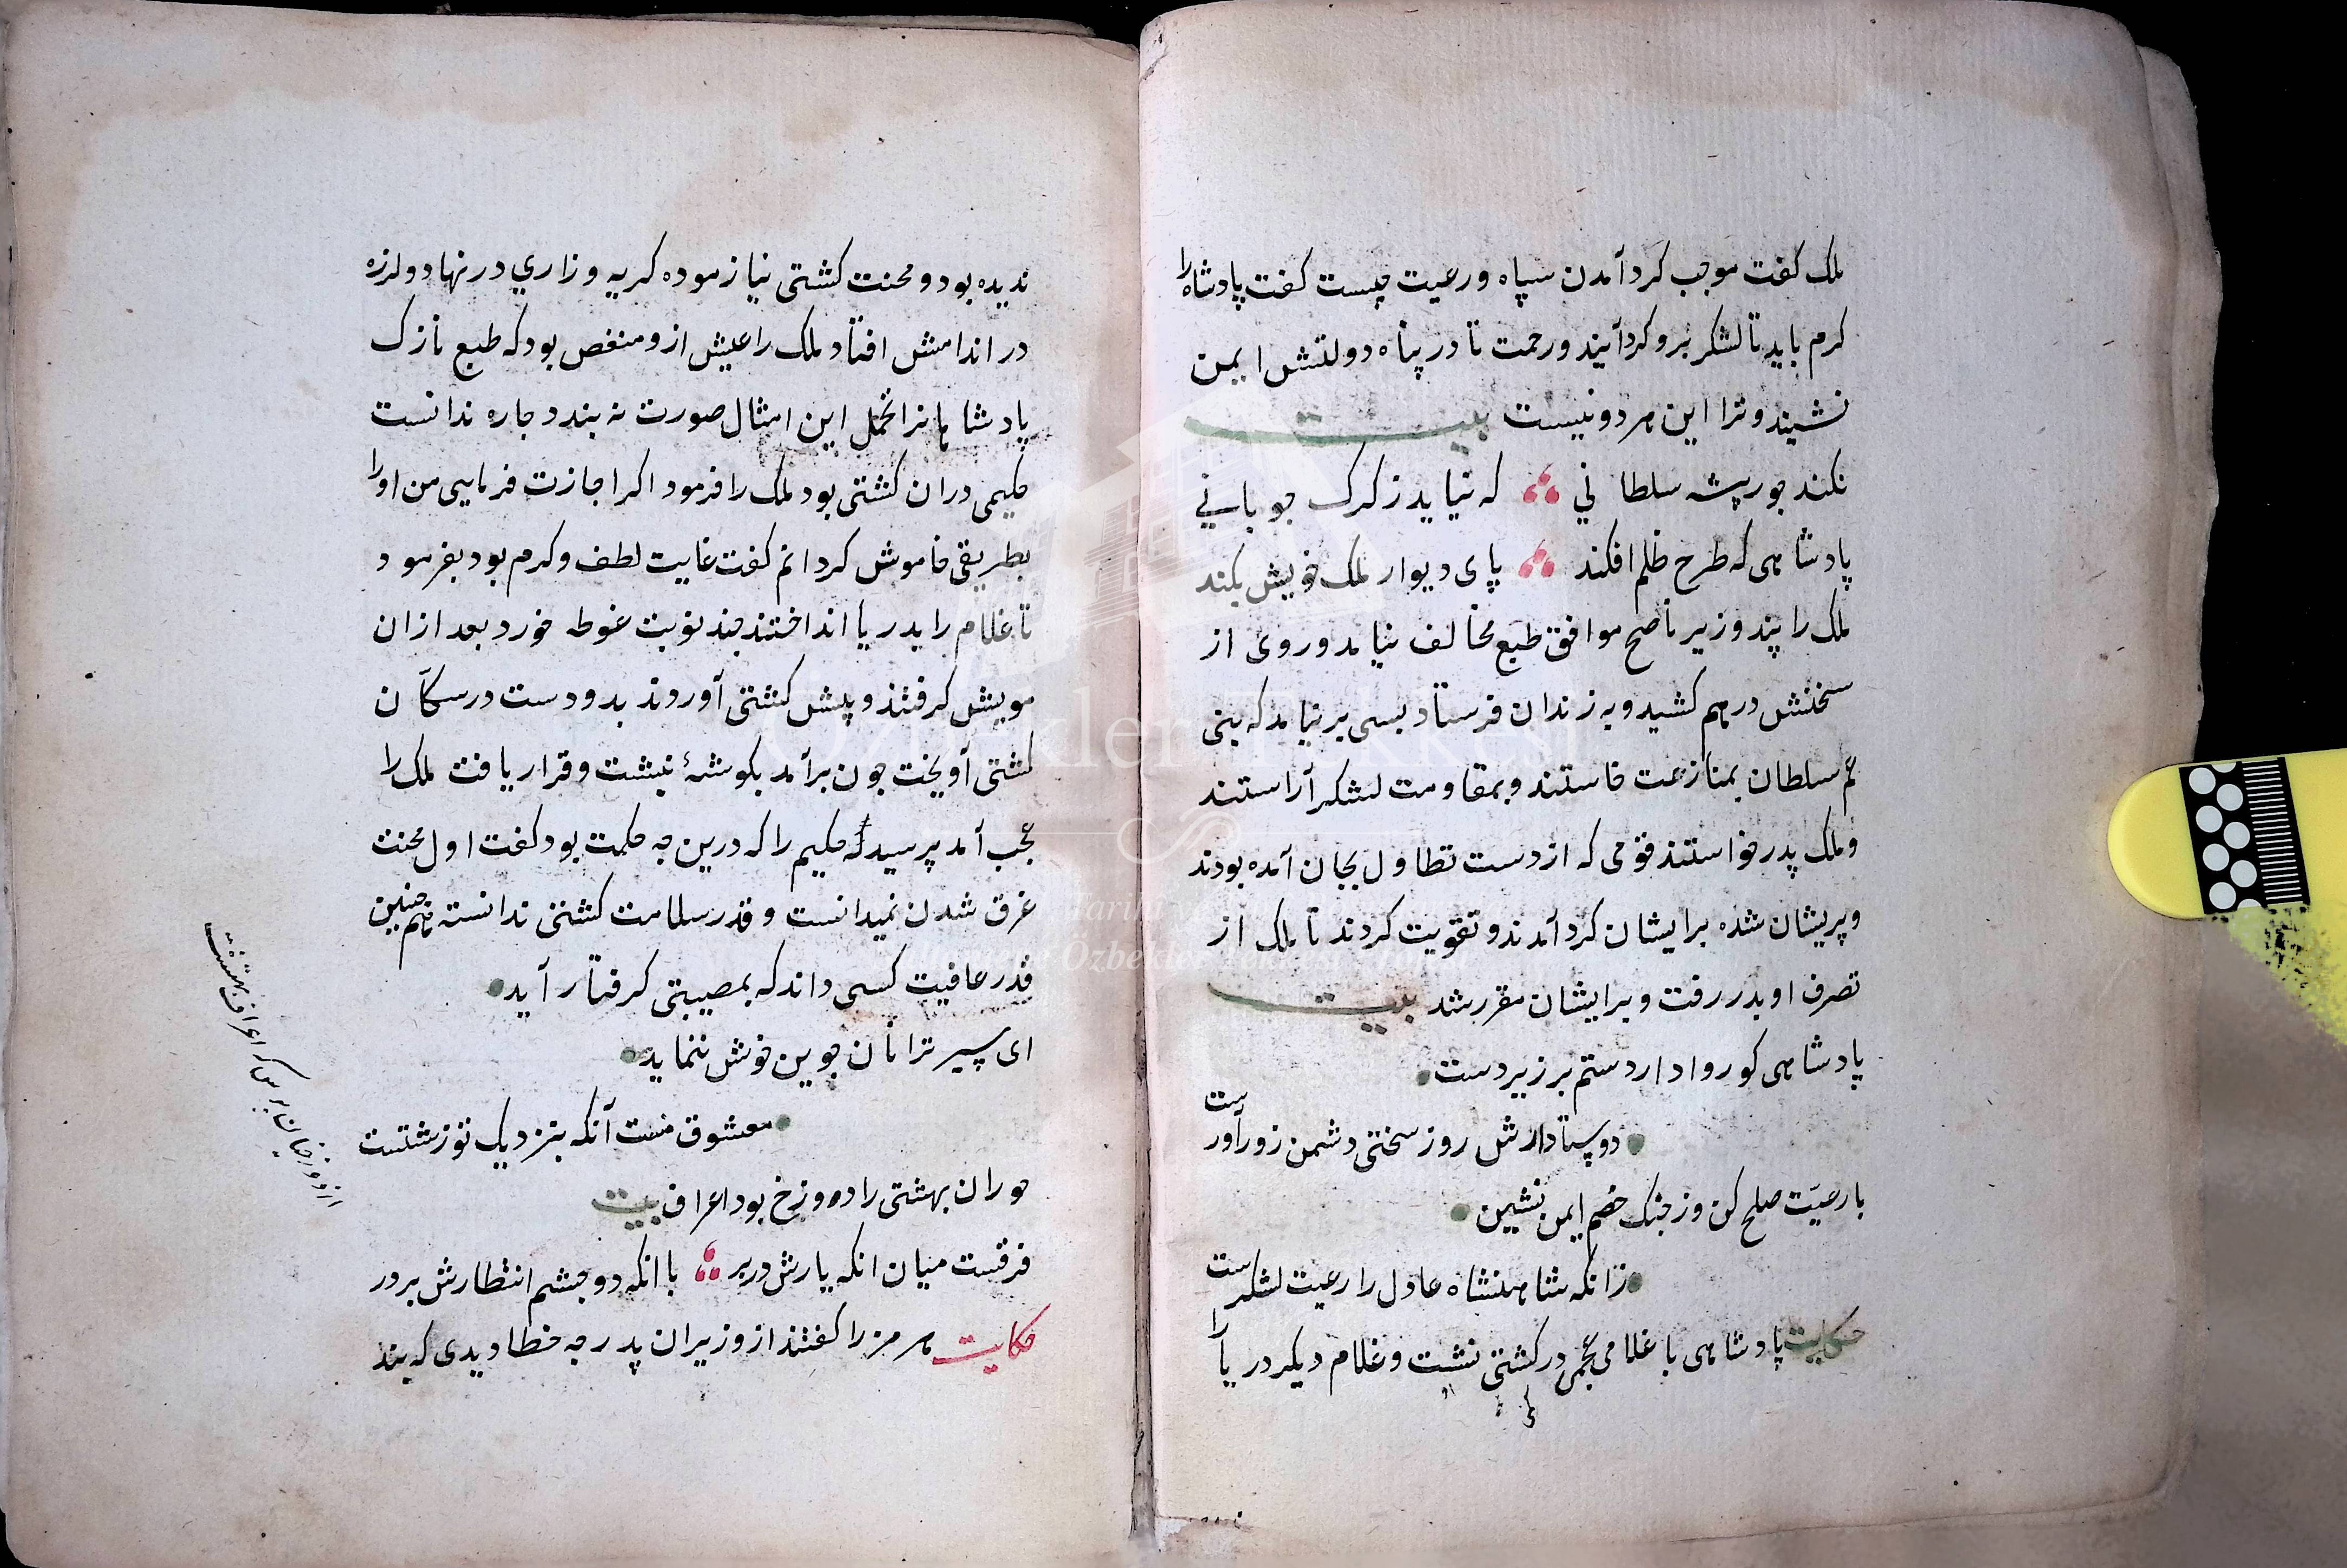 ملک کفت موجب کرد آمدن سپاه و رعیت چیست کفت پادشاه را
کرم باید تا لشکر برو کرد آیند و رحمت تا در پناه دولتش ایمن
نشینند و ترا این هر دو نیست بیت
نکند جور پیشه سلطانی که نیاید ز کرک جوپانی
پادشاهی که طرح ظلم افکند پای دیوار ملک خویش بکند
ملک را پند وزیر ناصح موافق طبع مخالف نیامد و روی از
سخنش در هم کشید و به زندان فرستاد بسی بر نیامد که بنی
عم سلطان بمنازعت خاستند و بمقاومت لشکر آراستند
و ملک پدر خواستند قومی که از دست تطاول بجان آمده بودند
و پریشان شده بر ایشان کرد آمدند و تقویت کردند تا ملک از
تصرف او بدر رفت و بر ایشان مقرر شد بیت
پادشاهی کو روا دارد ستم بر زیردست
دوستدارش روز سختی دشمن زورآورست
با رعیّت صلح کن وز جنک خصم ایمن نشین
زانکه شاهنشاه عادل را رعیت لشکرست
حکایت پادشاهی با غلامی عجمی در کشتی نشست و غلام دیکر دریا را
ندیده بود و محنت کشتی نیازموده کریه و زاری در نهاد و لرزه
در اندامش افتاد ملک را عیش ازو منغص بود که طبع نازک
پادشاهانرا تحمل این امثال صورت نه بندد جاره ندانست
حکیمی دران کشتی بود ملک را فرمود اکر اجازت فرمایی من او را
بطریقی خاموش کردانم کفت غایت لطف و کرم بود بفرمود
تا غلام را بدریا انداختند جند نوبت غوطه خورد بعد ازان
مویش کرفتند و پیش کشتی آوروند بدو دست در سکّان
کشتی آویخت جون برآمد بکوشهٔ بنشست و قرار یافت ملک را
عجب آمد پرسید که حکیم را که درین جه حکمت بود کفت اول محنت
غرق شدن نمیدانست و قدر سلامت کشتی ندانسته همچنین
قدر عافیت کسی داند که بمصیبتی کرفتار آید
ای سیر ترا نان جوین خوش ننماید
معشوق منست آنکه بنزدیک تو زشتست
حوران بهشتی را دوزخ بود اعراف بیت
فرقست میان انکه یارش در بر با انکه دو جشم انتظارش بر در
حکایت هرمز را کفتند از وزیران پدر جه خطا دیدی که بند
از دوزخیان پرس که اعراف بهشتست